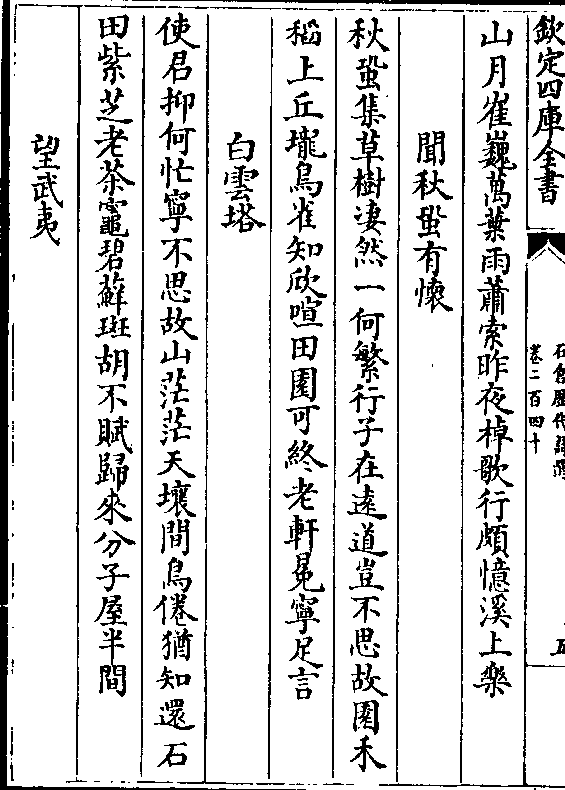 欽定四庫全書
石倉歷代詩選
卷二百四十
五
山月崔巍萬葉雨蕭索昨夜棹歌行頗憶溪上樂
聞秋蛩有懷
秋蛩集草樹淒然一何繁行子在遠道豈不思故園禾
稻上丘壠鳥雀知欣喧田園可終老軒冕寧足言
白雲塔
使君抑何忙寧不思故山茫茫天壤間鳥倦猶知還石
田紫芝老茶竈碧蘚斑胡不賦歸來分子屋半間
望武夷